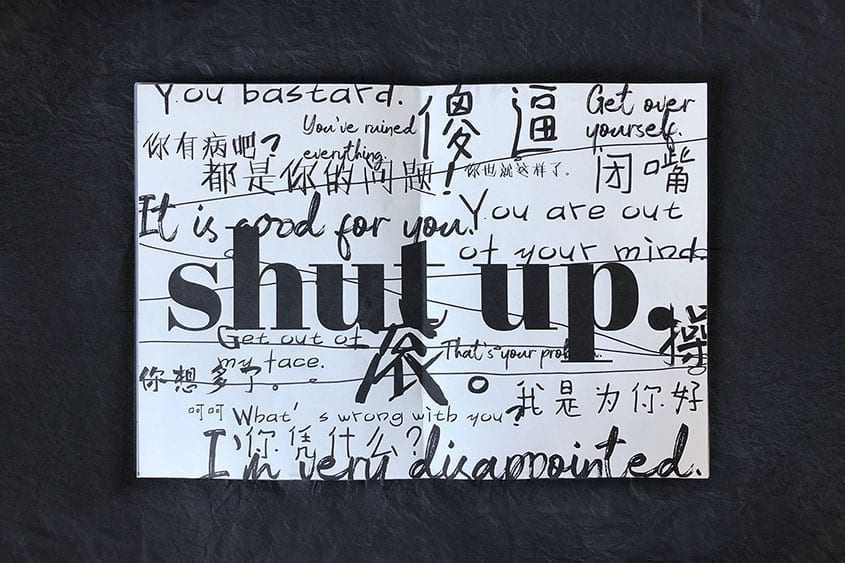 You bastard.
傻逼
Get over
yourself.
You've ruined
everything.
你有病吧？
都是你的问题！
你也就这样了。
闭嘴
It is good for you.
You are out
of your mind.
shut up.
操
Get out of
my face.
滚。
That's your problem.
你想多了。
我是为你好
呵呵
What's wrong with you?
你凭什么？
I'm very disappointed.